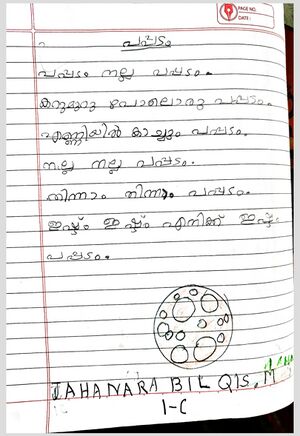 PAGE NO:
DATE:
പപ്പടം
പപ്പടം നല്ല പപ്പടം.
കറുമുറു പോലൊരു പപ്പടം.
എണ്ണയിൽ കാച്ചും പപ്പടം.
നല്ല നല്ല പപ്പടം.
തിന്നാം തിന്നാം പപ്പടം.
ഇഷ്ടം ഇഷ്ടം എനിക്ക് ഇഷ്ടം
പപ്പടം.
JAHANARA BILQIS.M
1-C